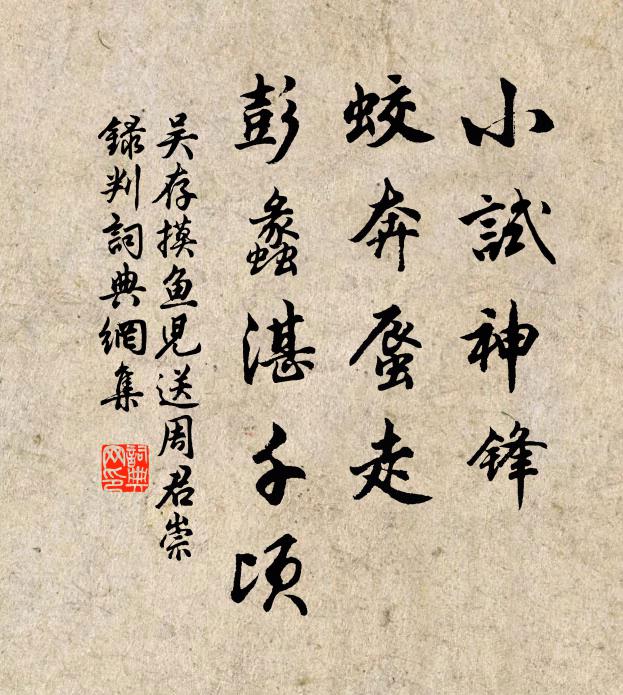 小試神鋒
蛟奔蜃走
彭蠡湛千頃
吴存摸魚兒送周君崇
録判詞典網集
詞典網印